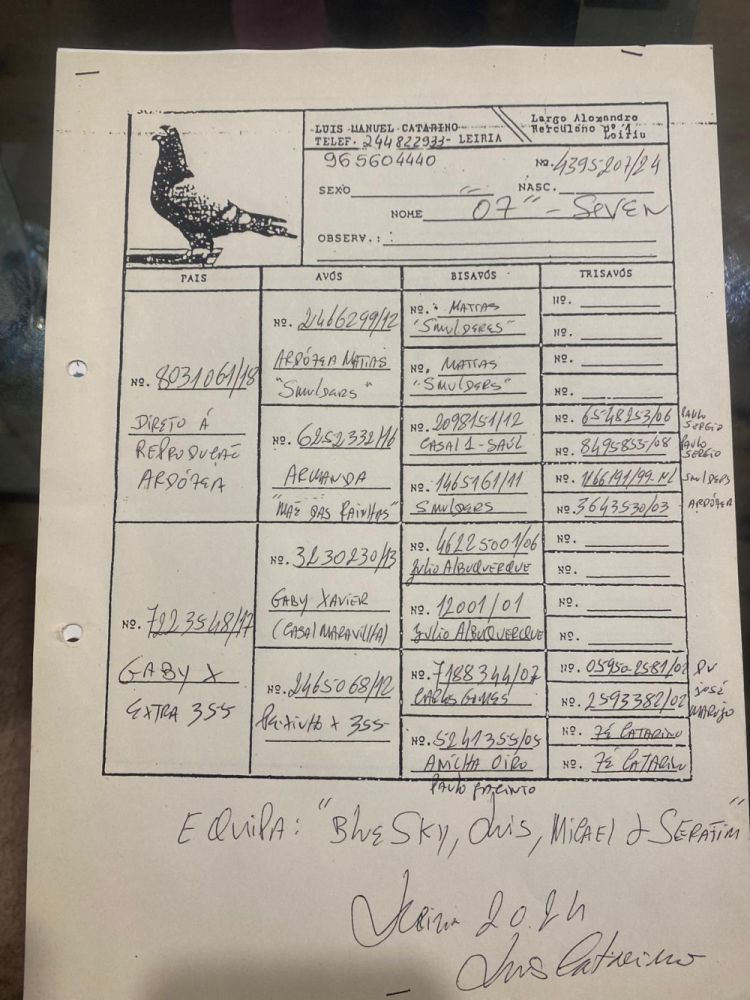 LUIS MANUEL CATARINO
TELEF. 244822933- LEIRIA
965604440
Largo Alexandre
Herculano nº 1
Nº. 4395207/24
SEXO " NASC.
NOME "07" - SEVEN
OBSERV.:
PAIS AVÓS BISAVÓS TRISAVÓS
Nº. 8031061/18
DIRETO Á
REPRODUÇAÕ
ARDÓZEA
Nº. 7223548/17
GABY X
EXTRA 355
Nº. 2466299/12
ARDÓZEA MATIAS
"SMULDERS"
Nº. 6252332/16
ARMANDA
"MÃE DAS RAINHAS"
Nº. 3230230/13
GABY XAVIER
(CASAL MARAVILHA)
Nº. 2465068/12
PEIXINHO X 355
Nº. MATIAS
"SMULDERES"
Nº. MATIAS
"SMULDERS"
Nº. 2098151/12
CASAL 1 - SAÚL
Nº. 1465161/11
SMULDERS
Nº. 46225001/06
JULIO ALBUQUERQUE
Nº. 12001/01
JULIO ALBUQUERQUE
Nº. 7188344/07
CARLOS GOMES
Nº. 5241355/05
ANILHA OIRO
PAULO JACINTO
Nº.
Nº.
Nº.
Nº.
Nº. 6548253/06 PAULO SERGIO
Nº. 8495855/08 PAULO SERGIO
Nº. 1166191/99-NL SMULDERS
Nº. 3643530/03 - ARDÓZEA
Nº.
Nº.
Nº.
Nº.
Nº. 05950-2581/02 DV
Nº. 2593382/02 JOSÉ MARUJO
Nº. ZÉ CATARINO
Nº. ZÉ CATARINO
EQUIPA: "BLUE SKY, LUIS, MICAEL & SERAFIM"
Leiria 2024
Luis Catarino